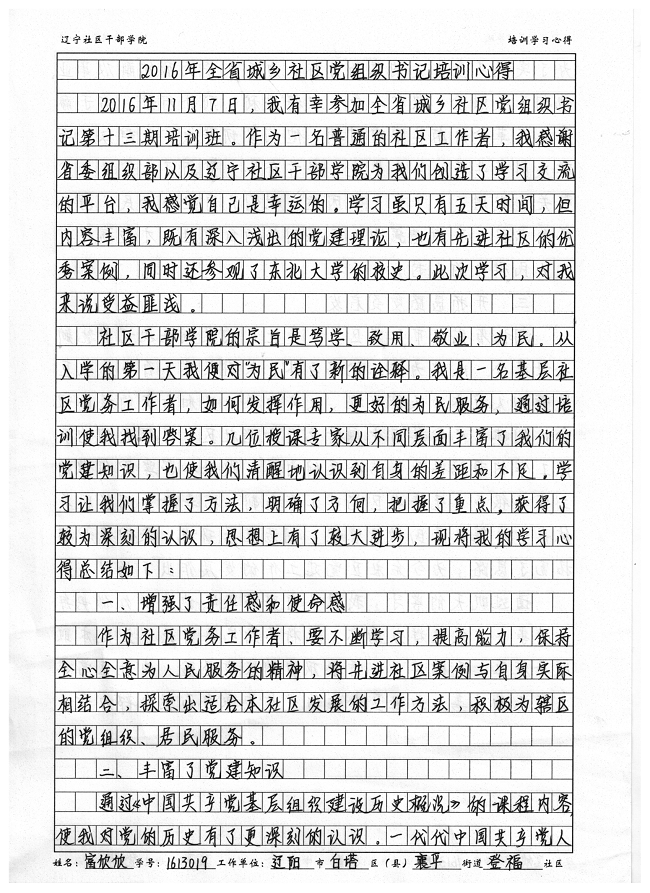 辽宁社区干部学院 培训学习心得
2016年全省城乡社区党组织书记培训心得
2016年11月7日,我有幸参加全省城乡社区党组织书
记第十三期培训班。作为一名普通的社区工作者,我感谢
省委组织部以及辽宁社区干部学院为我们创造了学习交流
的平台,我感觉自己是幸运的。学习虽只有五天时间,但
内容丰富,既有深入浅出的党建理论,也有先进社区的优
秀案例,同时还参观了东北大学的校史。此次学习,对我
来说受益匪浅。
社区干部学院的宗旨是笃学、致用、敬业、为民。从
入学的第一天我便对"为民"有了新的诠释。我是一名基层社
区党务工作者,如何发挥作用,更好的为民服务,通过培
训使我找到答案。几位授课专家从不同层面丰富了我们的
党建知识,也使我们清醒地认识到自身的差距和不足。学
习让我们掌握了方法,明确了方向,把握了重点。获得了
较为深刻的认识,思想上有了较大进步,现将我的学习心
得总结如下:
一、增强了责任感和使命感
作为社区党务工作者,要不断学习,提高能力,保持
全心全意为人民服务的精神,将先进社区案例与自身实际
相结合,探索出适合本社区发展的工作方法,积极为辖区
的党组织、居民服务。
二、丰富了党建知识
通过《中国共产党基层组织建设历史概况》的课程内容,
使我对党的历史有了更深刻的认识。一代代中国共产党人
姓名:富饮饮 学号:1613019 工作单位:辽阳 市 白塔 区(县)襄平 街道 登福 社区